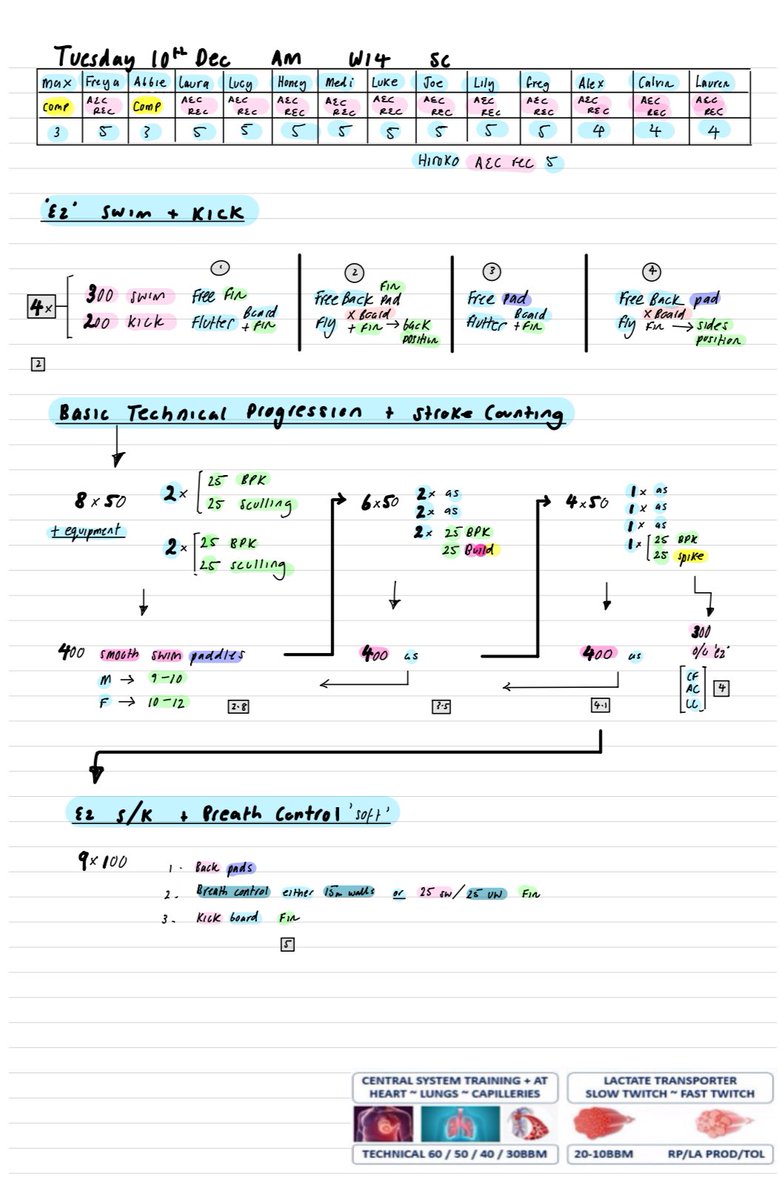 Tuesday 10th Dec AM W14 SC
Max Freya Abbie Laura Lucy Honey Medi Luke Joe Lily Greg Alex Calvin Lauren
COMP AEC REC COMP AEC REC AEC REC AEC REC AEC REC AEC REC AEC REC AEC REC AEC REC AEC REC AEC REC AEC REC
3 5 3 5 5 5 5 5 5 5 5 4 4 4
HIROKO AEC REC 5
'E2' Swim + Kick
1 2 3 4
4x
300 swim Free Fin
200 kick Flutter Board + Fin
Free Back Pad Fin
Fly x Board + Fin → back position
Free pad
Flutter Board + Fin
Free Back pad
Fly x Board Fin → sides position
2
Basic Technical Progression + Stroke Counting
8 x 50
+ equipment
2 x 25 BPK
25 sculling
2 x 25 BPK
25 sculling
6 x 50
2 x as
2 x as
2 x 25 BPK
25 Build
4 x 50
1 x as
1 x as
1 x as
1 x 25 BPK
25 spike
400 smooth swim paddles
M → 9-10
F → 10-12
2.8
400 as
3.5
400 as
4.1
300
o/c 'E2'
CF
AC
LL
4
E2 S/K + Breath Control 'soft'
9 x 100
1. Back pads
2. Breath control either 15m walls or 25 sw/25 uw Fin
3. Kick board Fin
5
CENTRAL SYSTEM TRAINING + AT
HEART ~ LUNGS ~ CAPILLERIES
TECHNICAL 60 / 50 / 40 / 30BBM
LACTATE TRANSPORTER
SLOW TWITCH ~ FAST TWITCH
20-10BBM RP/LA PROD/TOL